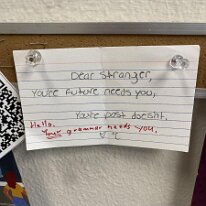 Dear Stranger,
You're future needs you,
You're past doesn't.
Hello.
Your grammar needs you.